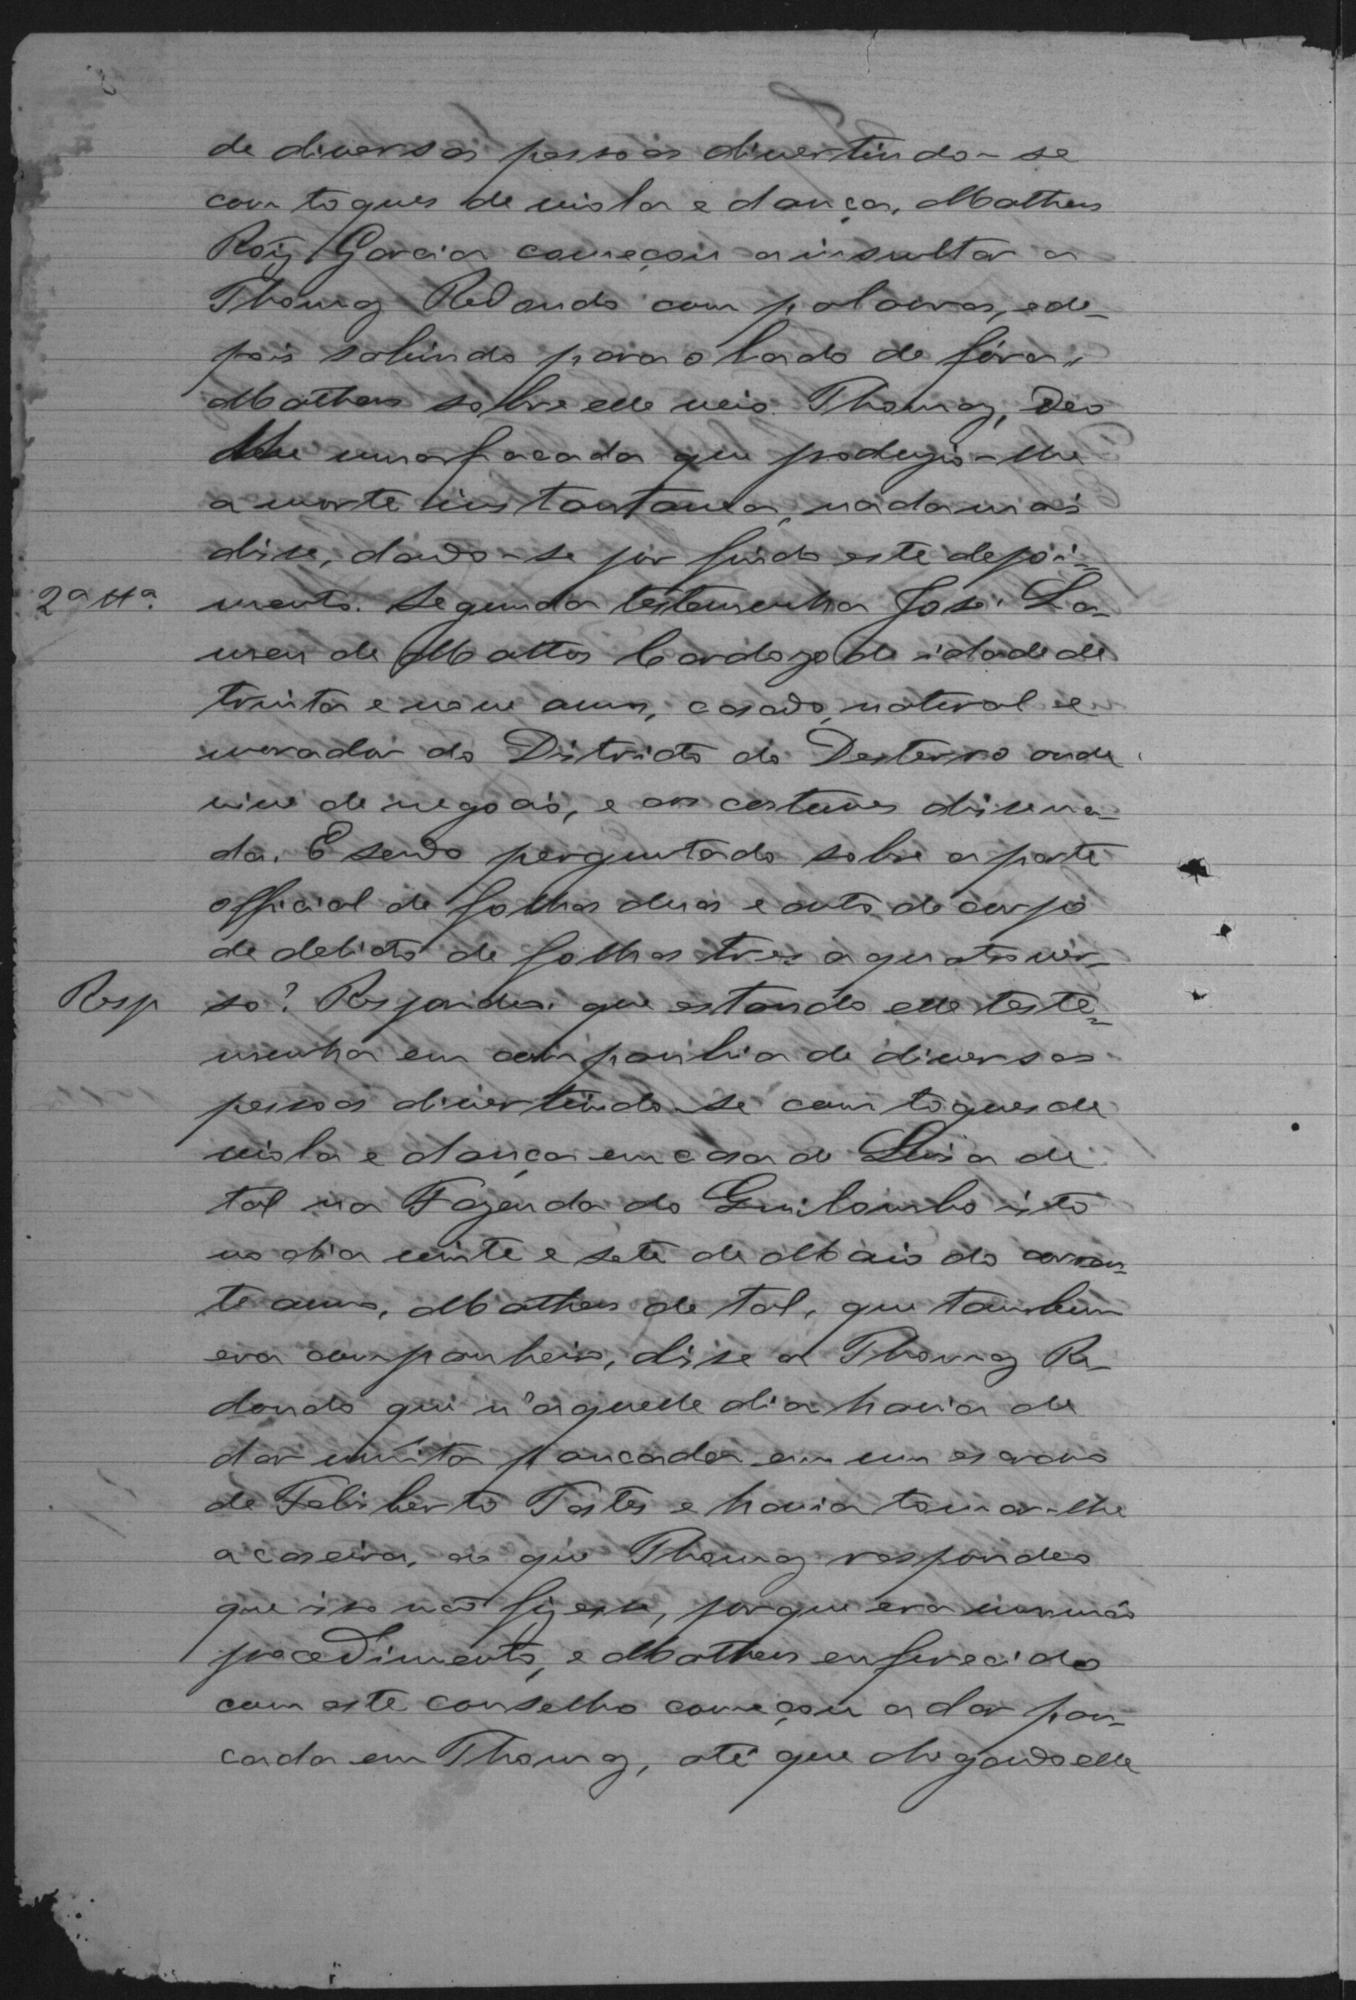 de diversas pessoas divertindo-se
com toques de viola e dança, Matheus
Roiz Garcia começou a insultar a
Thomaz Redondo com palavras, e de-
pois sahindo para o lado de fóra,
Matheus sobre elle veio Thomaz, Deo
lhe uma facada que produzio-lhe
a morte instantanea, nada mais
disse, dando-se por findo este depoi-
2ª ttª. mento. Segunda testemunha José
de Mattos Cardozo de idade de
trinta e nove annos, casado, natural e
morador do Districto do Desterro onde
vive de negocio, e aos costumes disse na-
da. E sendo perguntado sobre a parte
official de folhas duas e auto de corpo
de delicto de folhas tres a quatro ver-
Resp so? Respondeu que estando elle teste-
munha em companhia de diversas
pessoas divertindo-se com toques de
viola e dança em casa de Luisa de
tal na Fazenda do Quilombo isto
no dia vinte e sete de Maio do corren-
te anno, Matheus de tal, que tambem
era companheiro, disse a Thomaz Re-
dondo que n'aquelle dia havia de
dar muita pancada em um escravo
de Felisberto Tostes e havia tomar-lhe
a caseira, ao que Thomaz respondeo
que isso não fizesse, porque era um máo
procedimento, e Matheus enfurecido
com este conselho começou a dar pan-
cada em Thomaz, até que chegando elle